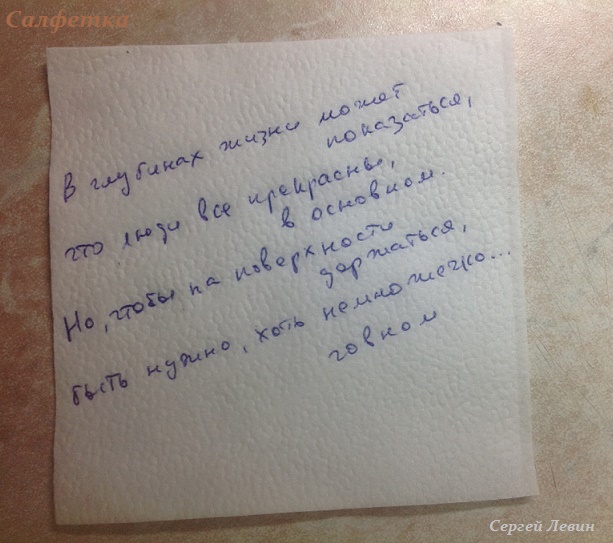 Салфетка
В глубинах жизни может
показаться,
что люди все прекрасны,
в основном.
Но, чтобы на поверхности
держаться,
быть нужно, хоть немножечко...
говном
Сергей Левин